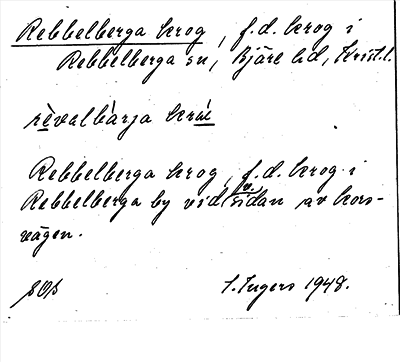 Rebbelberga krog, f.d. krog i
Rebbelberga sn, Bjäre hd, Krist.l.
rèvalbàrja
Rebbelberga krog, f.d. krog i
Rebbelberga by vid v. sidan av kors-
vägen.
S. Ingers 1948.